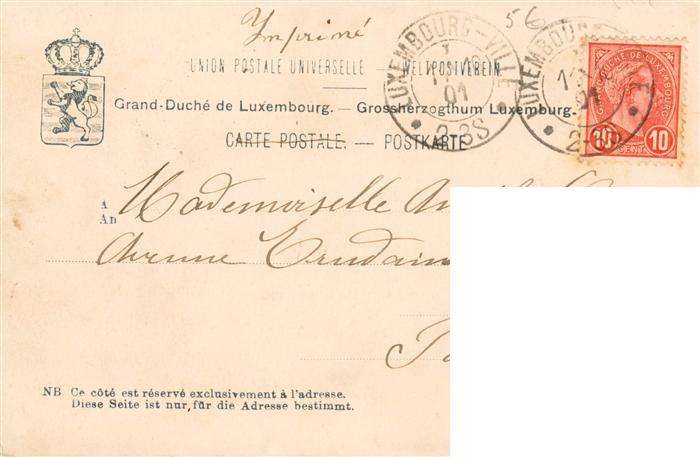 Imprimé
56
UNION POSTALE UNIVERSELLE – WELTPOSTVEREIN.
Grand-Duché de Luxembourg. — Grossherzogthum Luxemburg.
CARTE POSTALE. — POSTKARTE
LUXEMBOURG-VILLE
01
2-3S
LUXEMBOURG
10 10
A Mademoiselle
An
Avenue
NB Ce côté est réservé exclusivement à l'adresse.
Diese Seite ist nur, für die Adresse bestimmt.